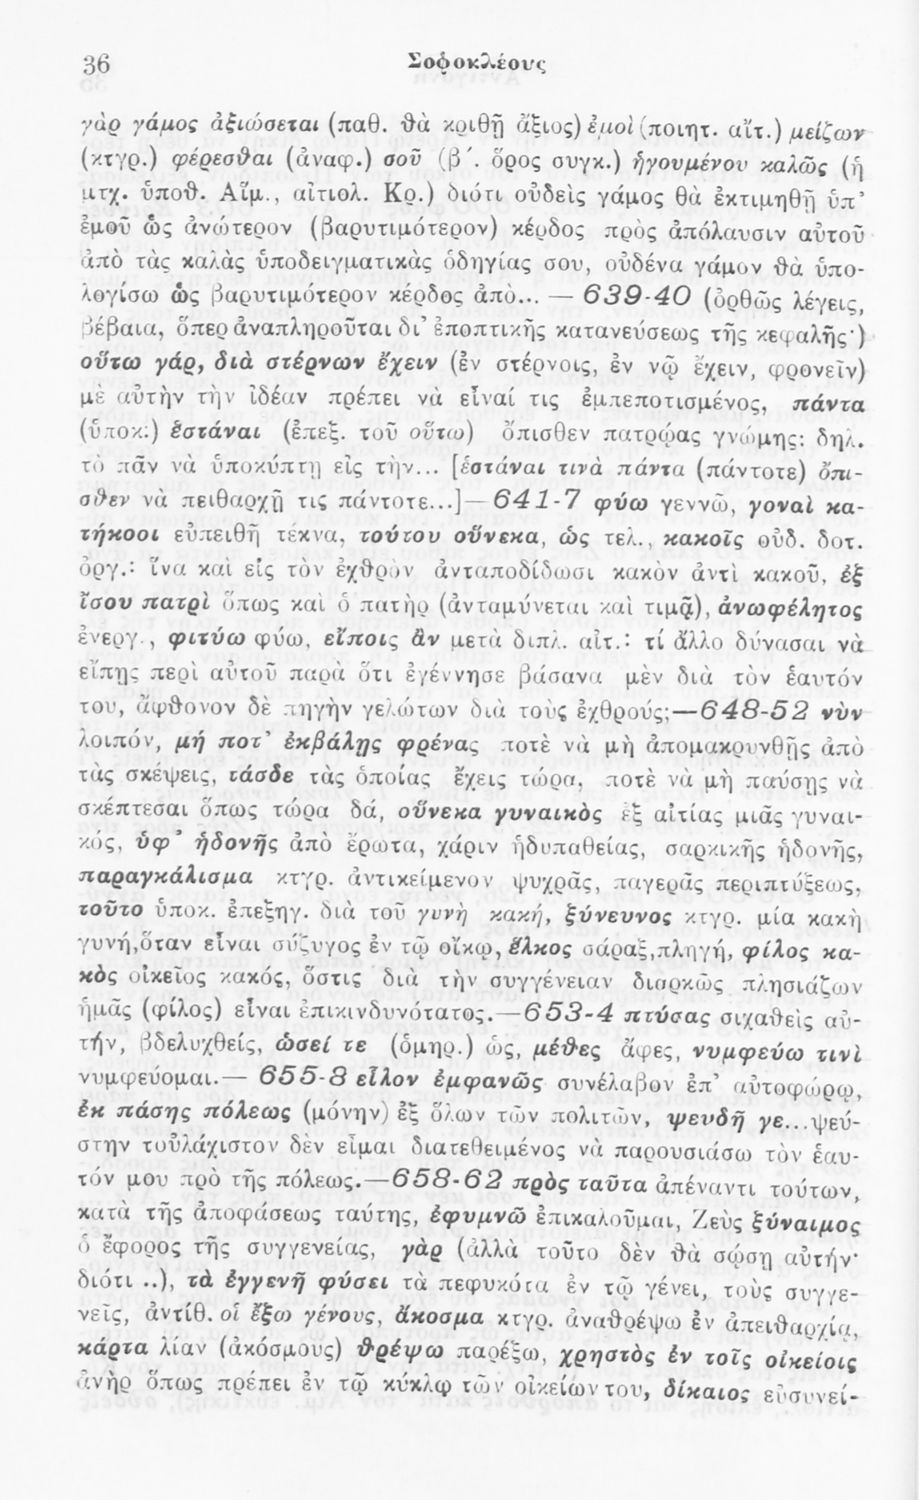 36
Σοφοκλέους
γὰρ γάμος ἀξιώσεται (παθ. θὰ κριθῇ ἄξιος) ἐμοὶ (ποιητ. αἴτ.) μείζων
(κτγρ.) φέρεσθαι (ἀναφ.) σοῦ (β´. ὅρος συγκ.) ἡγουμένου καλῶς (ἡ
μτχ. ὑποθ. Αἵμ., αἰτιολ. Κρ.) διότι οὐδεὶς γάμος θὰ ἐκτιμηθῇ ὑπ’
ἐμοῦ ὡς ἀνώτερον (βαρυτιμότερον) κέρδος πρὸς ἀπόλαυσιν αὐτοῦ
ἀπὸ τὰς καλὰς ὑποδειγματικὰς ὁδηγίας σου, οὐδένα γάμον θὰ ὑπο-
λογίσω ὡς βαρυτιμότερον κέρδος ἀπὸ... — 639-40 (ὀρθῶς λέγεις,
βέβαια, ὅπερ ἀναπληροῦται δι’ ἐποπτικῆς κατανεύσεως τῆς κεφαλῆς·)
οὕτω γάρ, διὰ στέρνων ἔχειν (ἐν στέρνοις, ἐν νῷ ἔχειν, φρονεῖν)
μὲ αὐτὴν τὴν ἰδέαν πρέπει νὰ εἶναί τις ἐμπεποτισμένος, πάντα
(ὑποκ:) ἑστάναι (ἐπεξ. τοῦ οὕτω) ὄπισθεν πατρῴας γνώμης: δηλ.
τὸ πᾶν νὰ ὑποκύπτῃ εἰς τὴν... [ἑστάναι τινὰ πάντα (πάντοτε) ὄπι-
σθεν νὰ πειθαρχῇ τις πάντοτε...]—641-7 φύω γεννῶ, γοναὶ κα-
τήκοοι εὐπειθῆ τέκνα, τούτου οὕνεκα, ὡς τελ., κακοῖς οὐδ. δοτ.
ὀργ.: ἵνα καὶ εἰς τὸν ἐχθρὸν ἀνταποδίδωσι κακὸν ἀντὶ κακοῦ, ἐξ
ἴσου πατρὶ ὅπως καὶ ὁ πατὴρ (ἀνταμύνεται καὶ τιμᾷ), ἀνωφέλητος
ἐνεργ., φιτύω φύω, εἴποις ἂν μετὰ διπλ. αἰτ.: τί ἄλλο δύνασαι νὰ
εἴπῃς περὶ αὐτοῦ παρὰ ὅτι ἐγέννησε βάσανα μὲν διὰ τὸν ἑαυτόν
του, ἄφθονον δὲ πηγὴν γελώτων διὰ τοὺς ἐχθρούς;—648-52 νὺν
λοιπόν, μή ποτ’ ἐκβάλῃς φρένας ποτὲ νὰ μὴ ἀπομακρυνθῇς ἀπὸ
τὰς σκέψεις, τάσδε τὰς ὁποίας ἔχεις τώρα, ποτὲ νὰ μὴ παύσῃς νὰ
σκέπτεσαι ὅπως τώρα δά, οὕνεκα γυναικὸς ἐξ αἰτίας μιᾶς γυναι-
κός, ὑφ’ ἡδονῆς ἀπὸ ἔρωτα, χάριν ἡδυπαθείας, σαρκικῆς ἡδονῆς,
παραγκάλισμα κτγρ. ἀντικείμενον ψυχρᾶς, παγερᾶς περιπτύξεως,
τοῦτο ὑποκ. ἐπεξηγ. διὰ τοῦ γυνὴ κακή, ξύνευνος κτγρ. μία κακὴ
γυνή, ὅταν εἶναι σύζυγος ἐν τῷ οἴκῳ, ἕλκος σάραξ, πληγή, φίλος κα-
κὸς οἰκεῖος κακός, ὅστις διὰ τὴν συγγένειαν διαρκῶς πλησιάζων
ἡμᾶς (φίλος) εἶναι ἐπικινδυνότατος.—653-4 πτύσας σιχαθεὶς αὐ-
τήν, βδελυχθείς, ὡσεί τε (ὁμηρ.) ὡς, μέθες ἄφες, νυμφεύω τινὶ
νυμφεύομαι.— 655-8 εἷλον ἐμφανῶς συνέλαβον ἐπ’ αὐτοφώρῳ,
ἐκ πάσης πόλεως (μόνην) ἐξ ὅλων τῶν πολιτῶν, ψευδῆ γε...ψεύ-
στην τοὐλάχιστον δὲν εἶμαι διατεθειμένος νὰ παρουσιάσω τὸν ἑαυ-
τόν μου πρὸ τῆς πόλεως.—658-62 πρὸς ταῦτα ἀπέναντι τούτων,
κατὰ τῆς ἀποφάσεως ταύτης, ἐφυμνῶ ἐπικαλοῦμαι, Ζεὺς ξύναιμος
ὁ ἔφορος τῆς συγγενείας, γὰρ (ἀλλὰ τοῦτο δὲν θὰ σῴσῃ αὐτήν·
διότι ..), τὰ ἐγγενῆ φύσει τὰ πεφυκότα ἐν τῷ γένει, τοὺς συγγε-
νεῖς, ἀντίθ. οἱ ἔξω γένους, ἄκοσμα κτγρ. ἀναθρέψω ἐν ἀπειθαρχίᾳ,
κάρτα λίαν (ἀκόσμους) θρέψω παρέξω, χρηστὸς ἐν τοῖς οἰκείοις
ἀνὴρ ὅπως πρέπει ἐν τῷ κύκλῳ τῶν οἰκείων του, δίκαιος εὐσυνεί-